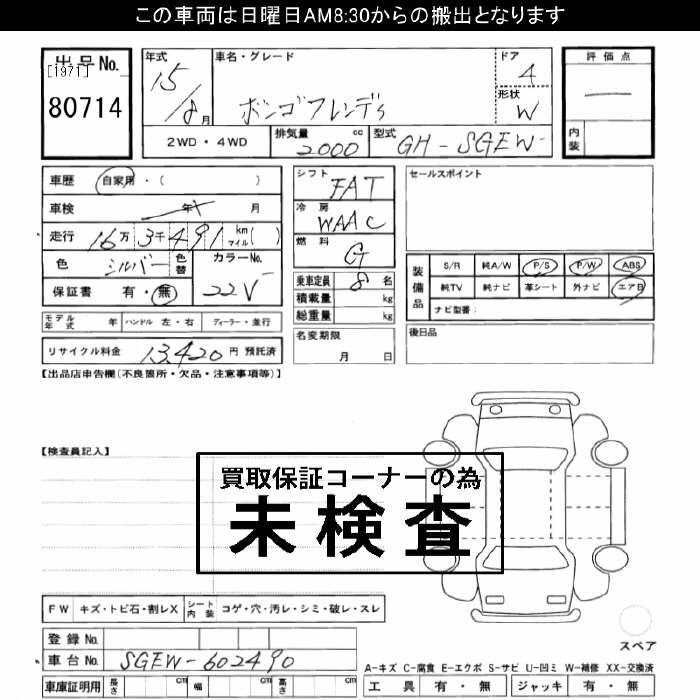 この車両は日曜日AM8:30からの搬出となります
出品No.
[1971]
80714
年式
15/8月
車名・グレード
ボンゴフレンディ
ドア
4
形状
W
2WD・4WD
排気量
2000
cc
型式
GH-SGEW-
評価点
内装
車歴 自家用・( )
車検 年 月
走行 16万3千491 km マイル( )
色 シルバー 色替 カラーNo. 22V
保証書 有・無
シフト
FAT
冷房
WAAC
燃料
G
乗車定員 8名
積載量 kg
総重量 kg
名変期限
月 日
セールスポイント
装備品
S/R 純A/W P/S P/W ABS
純TV 純ナビ 革シート 外ナビ エアB
ナビ型番:
後日品
モデル年式 年 ハンドル 左・右 ディーラー・並行
リサイクル料金 13,420 円 預託済
【出品店申告欄(不良箇所・欠品・注意事項等)】
【検査員記入】
買取保証コーナーの為
未検査
FW キズ・トビ石・割レX シート内装 コゲ・穴・汚レ・シミ・破レ・スレ
登録No.
車台No. SGEW-602490
車庫証明用 長さ cm 幅 cm 高さ cm
スペア
A-キズ C-腐食 E-エクボ S-サビ U-凹ミ W-補修 XX-交換済
工具 有・無 ジャッキ 有・無